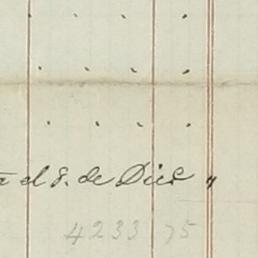 el 8. de Dice "
4233 75